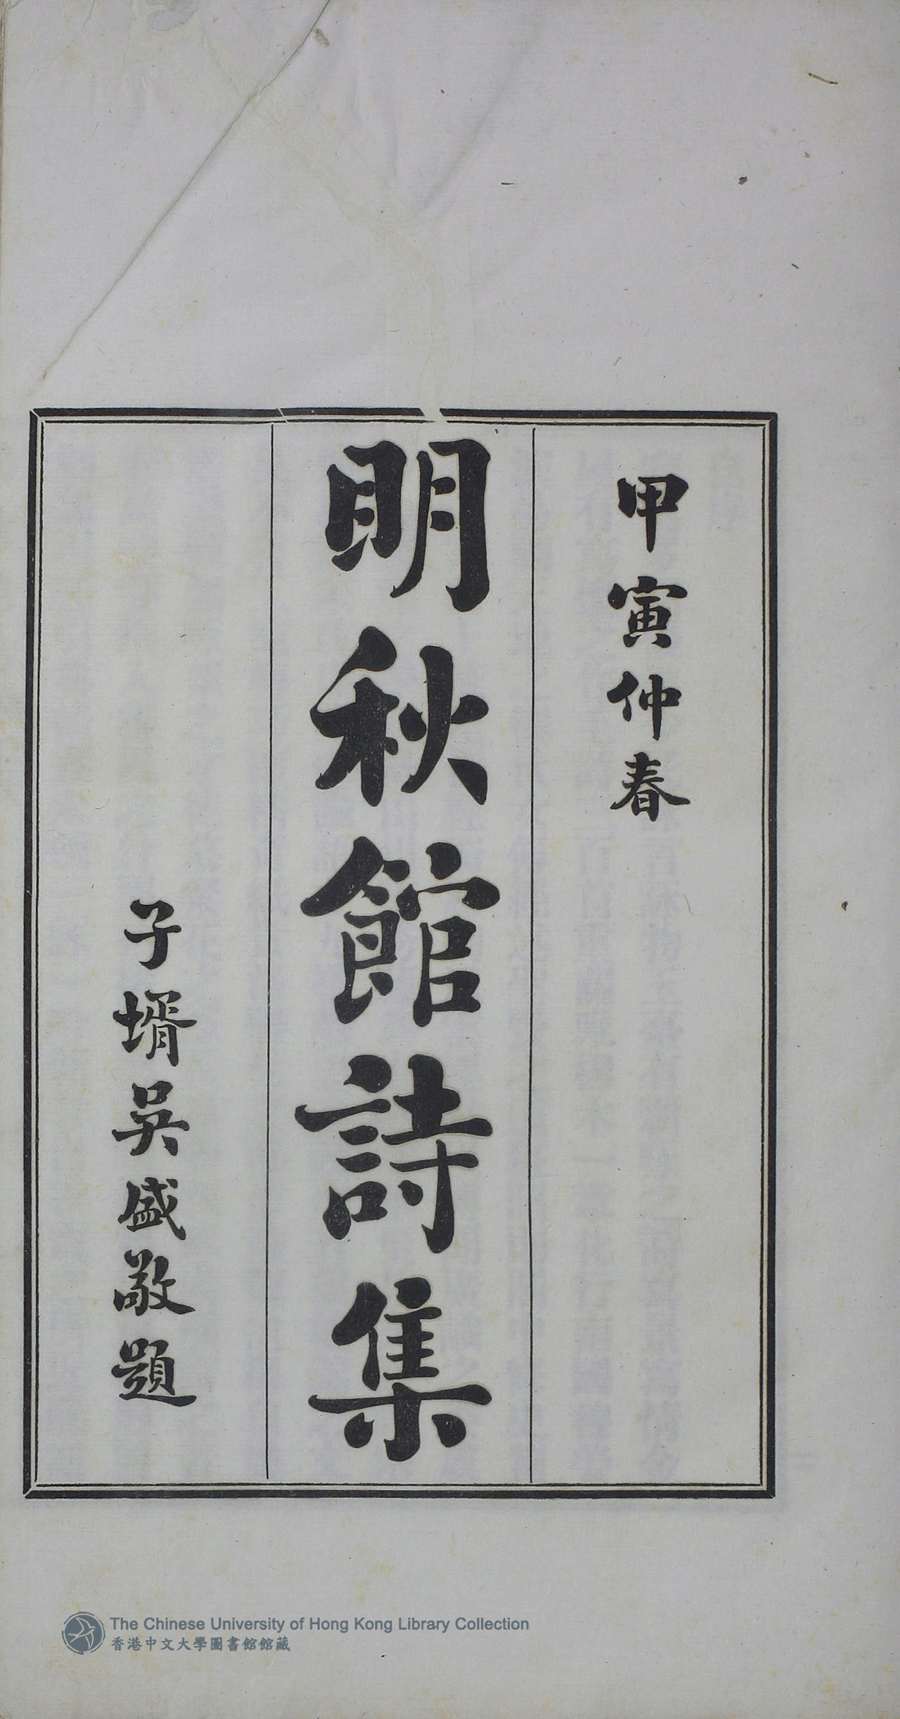 甲寅仲春
明秋館詩集
子壻吳盛敬題
The Chinese University of Hong Kong Library Collection
香港中文大學圖書館館藏